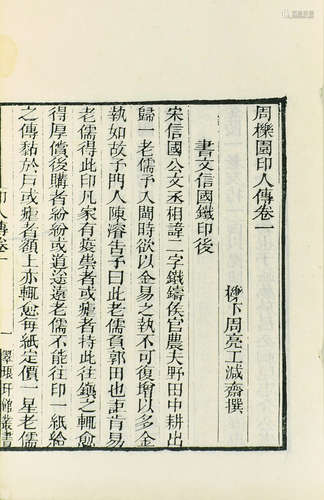 周櫟園印人傳卷一
櫟下周亮工減齋撰
書文信國鐵印後
宋信國公文丞相諱二字鐵鑄侯官農夫野田中耕出
歸一老儒予入閩時欲以金易之執不可復增以多金
執如故予門人陳濬告予曰此老儒負郭田也詎肯易
老儒得此印凡家有疫祟者或瘧者持此往鎮之輒愈
得厚償後購者紛紛或道途遠老儒不能往印一紙給
之傳黏於戶或瘧者額上亦輒愈每紙定價一星老儒
印人傳卷一
一
翠琅玕館叢書